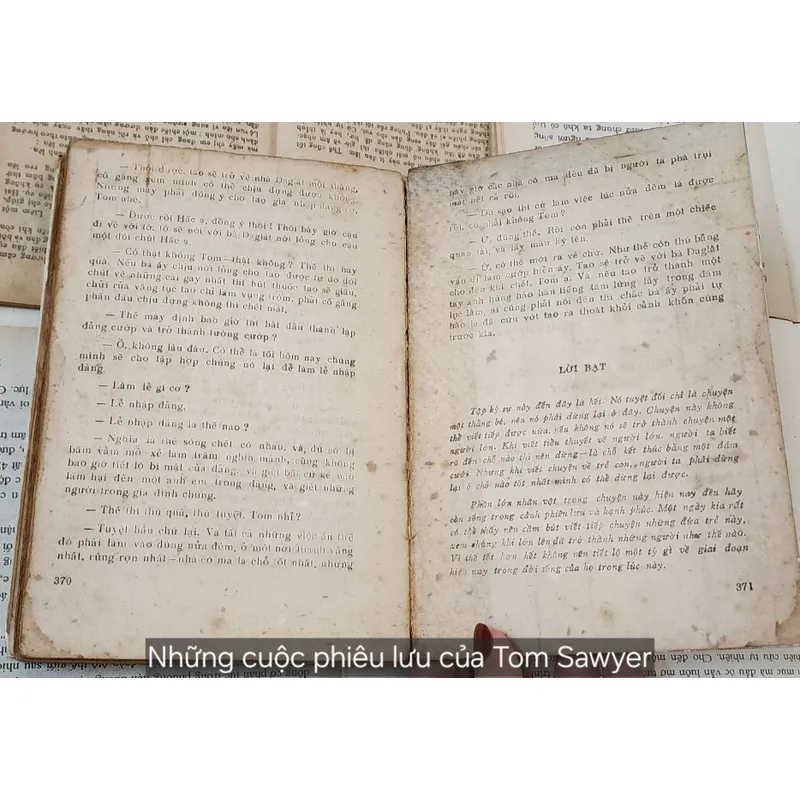 — Thôi được, tao sẽ trở về nhà Đaglát một tháng,
cố gắng xem mình có thể chịu đựng được không.
Nhưng mày phải đồng ý cho tao gia nhập đảng cướp,
Tom nhé.
— Được rồi Hắc ạ, đồng ý thôi! Thôi bây giờ cậu
đi về với tớ, tớ sẽ nói với bà Đaglát nới lỏng cho cậu
một đôi chút Hắc ạ.
— Có thật không Tom—thật không? Thế thì hay
quá. Nếu bà ấy chịu nới lỏng cho tao được tự do đôi
chút về những cái gay nhất thì hút thuốc tao sẽ giấu,
chửi của vãng lục tao chỉ làm vụng trộm, phải cố gắng
phấn đấu chịu đựng không thì chết mất.
— Thế mày định bao giờ thì bắt đầu thành lập
đảng cướp và trở thành tướng cướp?
— Ồ, không lâu đâu. Có thể là tối hôm nay chúng
mình sẽ cho tập hợp chúng nó lại để làm lễ nhập
đảng.
— Làm lễ gì cơ?
— Lễ nhập đảng.
— Lễ nhập đảng là thế nào?
— Nghĩa là thề sống chết có nhau, và, dù có bị
băm vằm mổ xẻ làm trăm nghìn mảnh, cũng không
bao giờ tiết lộ bí mật của đảng, và giết bất cứ kẻ nào
làm hại đến một anh em trong đảng, và giết những
người trong gia đình chúng.
— Thế thì thú quá, thú tuyệt, Tom nhỉ?
— Tuyệt hẳn chứ lại. Và tất cả những việc ăn thề
đó phải làm vào đúng nửa đêm, ở một nơi thanh vắng
nhất, rùng rợn nhất—nhà có ma là chỗ tốt nhất, nhưng
370
bây giờ các nhà có ma đều đã bị người ta phá trụi
mất hết cả rồi.
— Đa sao thì cứ làm việc lúc nửa đêm là được
rồi, có phải không Tom?
— Ừ, đúng thế. Rồi còn phải thề trên một chiếc
quan tài, và lấy máu ký tên.
— Ừ, có thế mới ra vẻ chứ. Như thế còn thú bằng
vạn đi làm cướp biển ấy. Tao sẽ trở về với bà Đaglát
cho đến khi chết, Tom ạ. Và nếu tao trở thành một
tay anh hùng hảo hán tiếng tăm lừng lẫy trong đám
lục lâm, ai cũng phải nói đến thì chắc bà ấy phải tự
hào là đã cứu vớt tao ra thoát khỏi cảnh khốn cùng
trước kia.
LỜI BẠT
Tập ký sự này đến đây là hết. Nó tuyệt đối chỉ là chuyện
một thằng bé, nên nó phải dừng lại ở đây. Chuyện này không
thể viết tiếp được nữa, nếu không nó sẽ trở thành chuyện một
người lớn. Khi viết tiền thuyết về người lớn, người ta biết
rõ đến chỗ nào thì nên dừng—là chỗ kết thúc bằng một đám
cưới. Nhưng khi viết chuyện về trẻ con, người ta phải dừng
lại ở chỗ nào tốt nhất mình có thể dừng lại được.
Phần lớn nhân vật trong chuyện này hiện nay đều hãy
còn sống trong cảnh phiêu lưu và hạnh phúc. Một ngày kia rất
có thể thấy nên cầm bút viết tiếp chuyện những đứa trẻ này,
xem chúng khi lớn lên đã trở thành những người như thế nào.
Vì thế tốt hơn hết không nên tiết lộ một tý gì về giai đoạn
hiện nay trong đời sống của họ trong lúc này.
371
Những cuộc phiêu lưu của Tom Sawyer